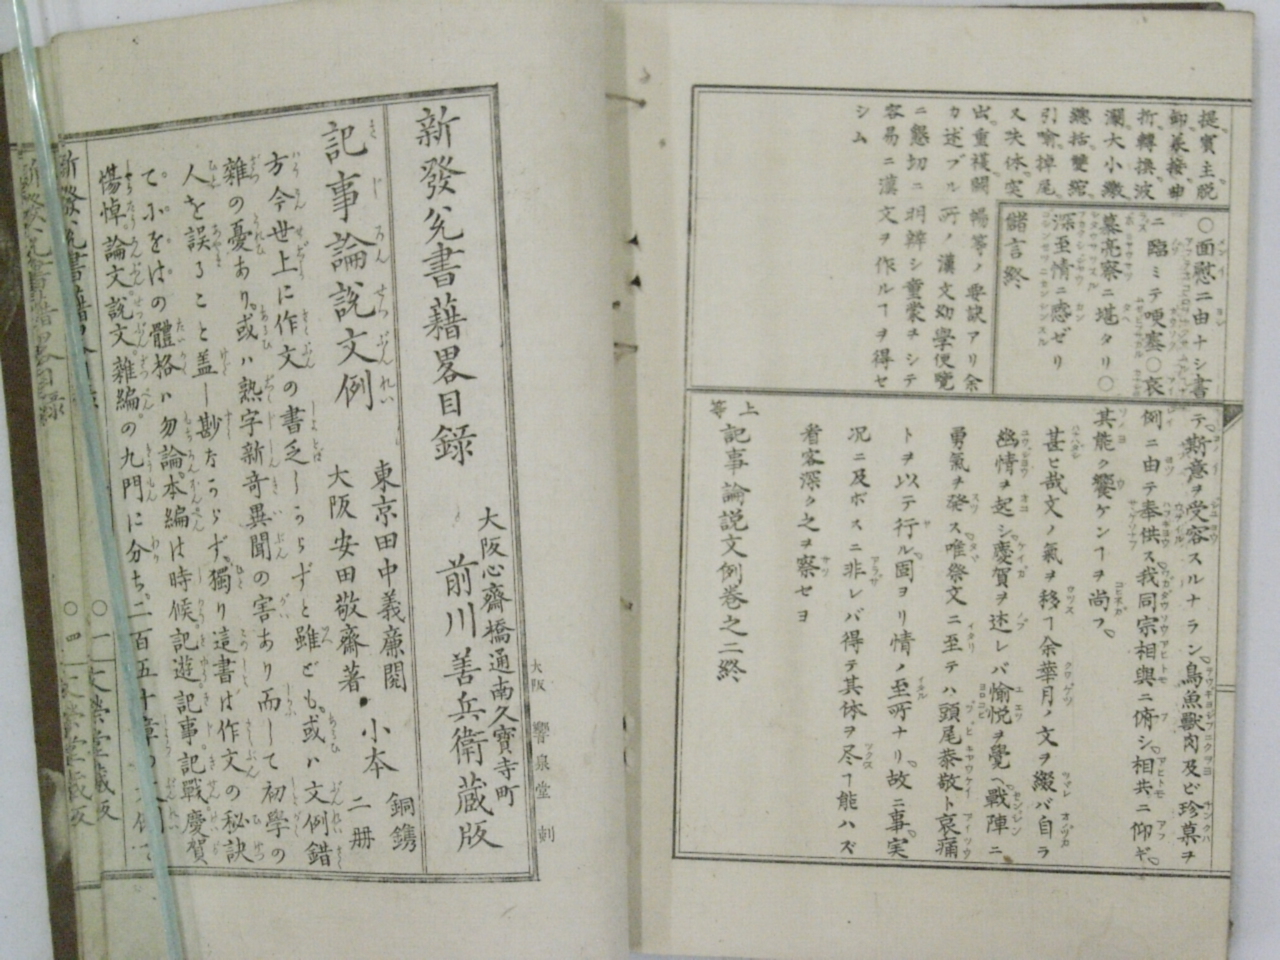 提賓主脱
卸養援神
折轉撥波
瀾大小繳
總括雙綰
引喩掉尾
又失体突
出重複關
暢等ノ要訣アリ余
カ述ブル所ノ漢文幼學便覽
ニ懇切ニ羽辯シ童蒙ヲシテ
容易ニ漢文ヲ作ルヿヲ得セ
シム
○面慰ニ由ナシ書
ニ臨ミテ哽塞○哀
慕亮察ニ堪タリ○
深至情ニ感ゼリ
儲言終
テ斯意ヲ受容スルナラン鳥魚獸肉及ビ珍菓ヲ
例ニ由テ奉供ス我同宗相與ニ俯シ相共ニ仰ギ
其能ク饗ケンヿヲ尚フ
甚ヒ哉文ノ氣ヲ移ヿ余華月ノ文ヲ綴バ自ラ
幽情ヲ起シ慶賀ヲ述レバ愉悦ヲ覺ヘ戰陣ニ
勇氣ヲ発ス唯祭文ニ至テハ頭尾恭敬ト哀痛
トヲ以テ行ル固ヨリ情ノ至所ナリ故ニ事実
况ニ及ボスニ非レバ得テ其体ヲ尽ヿ能ハズ
看客深ク之ヲ察セヨ
上等 記事論説文例巻之二終
大阪 響泉堂 刻
新發兊書藉畧目録
大阪心齋橋通南久寳寺町
前川善兵衛蔵版
記事論説文例
東京田中義廉閲
大阪安田敬齋著
小本 銅鐫
二册
方今世上に作文の書乏しからずと雖ども或ハ文例錯
雜の憂あり或ハ熟字新奇異聞の害あり而して初學の
人を誤ること盖し尠なからず獨り這書は作文の秘訣
てにをはの體格ハ勿論本編は時候記遊記事記戰慶賀
傷悼論文説文雜編の九門に分ち二百五十章の
新發兊書藉畧目録
○一 文榮堂蔵版
新發兊書藉畧目録
○四 文榮堂蔵版